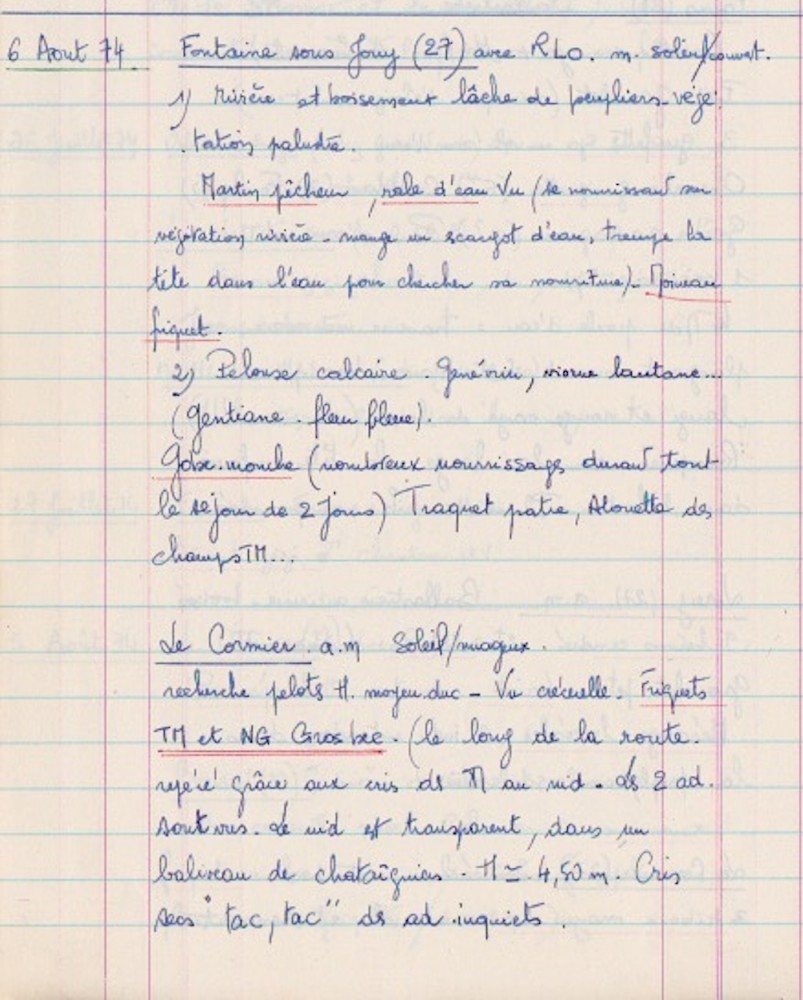 6 Aout 74 Fontaine sous Jouy (27) avec RLO. m. soleil/couvert.
1) Rivière et boisement lâche de peupliers - végé
tation palustre.
Martin pêcheur, rale d'eau Vu (se nourrissant sur
végétation rivière - mange un escargot d'eau, trempe la
tête dans l'eau pour chercher sa nourriture) - Moineau
friquet.
2) Pelouse calcaire. Genévrier, viorne lantane...
(gentiane - fleur bleue).
Gobe-mouche (nombreux nourrissages durant tout
le séjour de 2 jours) Traquet patre, Alouette des
champs TM...
Le Cormier. a.m Soleil/nuageux.
recherche pelotes H. moyen-duc - Vu crécerelle. Friquets
TM et NG Gros bec. (le long de la route.
repéré grâce aux cris ds au nid - Ls 2 ad.
sont vus. Le nid est transparent, dans un
baliveau de chataîgniers. H ≃ 4,50 m. Cris
secs "tac, tac" ds ad. inquiets.